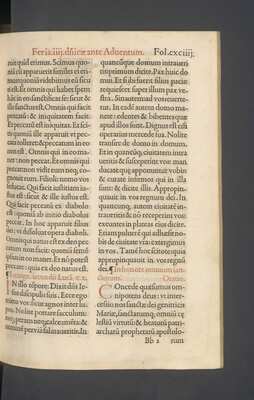 Feria.iiij. dñice ante Aduentum. Fol.cxciij.
nuit quid erimus. Scimus quo
niā cū apparuerit similes ei eri-
mus: quoniā videbimus eū sicu-
ti est. Et omnis qui habet spem
hāc in eo: sanctificat se: sicut & il-
le sanctus est. Omnis qui facit
peccatū: & iniquitatem facit.
Et peccatū est iniquitas. Et sci-
tis quoniā ille apparuit vt pec-
cata tolleret: & peccatum in eo nō
est. Omnis qui in eo ma-
net: non peccat. Et omnis qui
peccat: non vidit eum nec, co-
gnouit eum. Filioli: nemo vos
seducat. Qui facit iustitiam: iu-
stus est: sicut & ille iustus est.
Qui facit peccatū: ex diabolo
est: quoniā ab initio diabolus
peccat. In hoc apparuit filius
dei: vt dissoluat opera diaboli.
Omnis qui natus est ex deo: pec-
catum non facit: quoniā semē
ipsius in eo manet. Et nō potest
peccare: quoniam ex deo natus est.
Luce. x.
IN illo tēpore: Dixit dñs Ie-
sus discipulis suis. Ecce ego
mitto vos: sicut agnos inter lu-
pos. Nolite portare sacculum:
neqz peram: neqz calceamēta: &
neminē per viā salutaueritis. In
quamcūque domum intraueri
tis: primum dicite. Pax huic do-
mui. Et si ibi fuerit filius pacis:
requiescet super illum pax ve-
stra. Sin autem: ad vos reuerte-
tur. In eadē aūt domo manete:
edentes & bibentes que apud
illos sunt. Dignus est est
operarius mercede sua. Nolite
transire de domo in domum.
Et in quamcunqz ciuitatē intra
ueritis & susceperint vos: man
ducate que apponuntur vobis
& curate infirmos qui in illa
sunt: & dicite illis. Appropin-
quauit in vos regnum dei. In
quamcunqz autem ciuitatē in-
traueritis & nō receperint vos:
exeuntes in plateas eius dicite.
Etiam puluerē qui adhesit no-
bis de ciuitate vra: extergimus
in vos. Tamē hoc scitote: quia
appropinquauit in vos regnū
dei.
COncede quesumus om-
nipotens deus: vt inter-
cessio nos sancte dei genitricis
Marie, sanctarumqz omniū ce-
lestiū virtutū: & beatorū patri-
archarū prophetarū apostolo-
Bb 2 rum